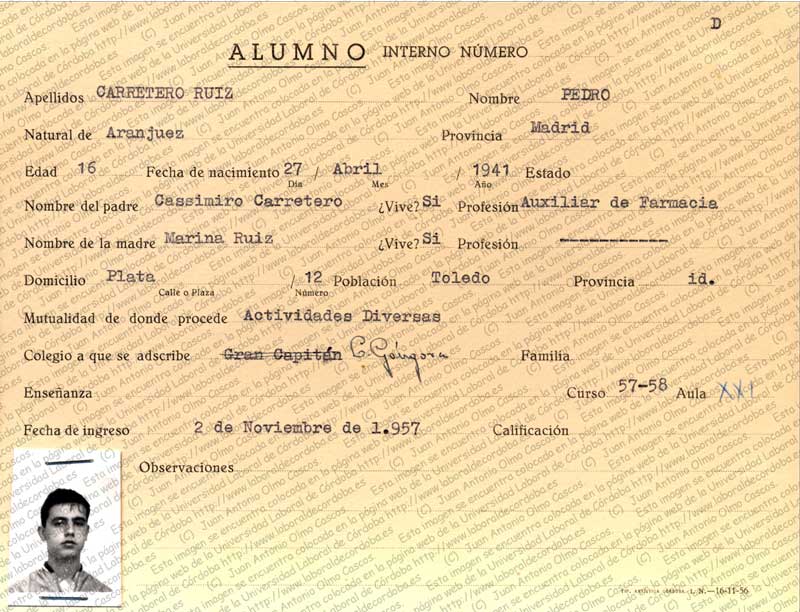 D
ALUMNO INTERNO NÚMERO
Apellidos CARRETERO RUIZ Nombre PEDRO
Natural de Aranjuez Provincia Madrid
Edad 16 Fecha de nacimiento 27 / Abril / 1941 Estado
Día Mes Año
Nombre del padre Cassimiro Carretero ¿Vive? Si Profesión Auxiliar de Farmacia
Nombre de la madre Marina Ruiz ¿Vive? Si Profesión ------------
Domicilio Plata / 12 Población Toledo Provincia id.
Calle o Plaza Número
Mutualidad de donde procede Actividades Diversas
Colegio a que se adscribe Gran Capitán L. Góngora Familia
Enseñanza Curso 57-58 Aula XXI
Fecha de ingreso 2 de Noviembre de 1.957 Calificación
Observaciones
N.—16-11-56
(C) Juan Antonio Olmo Cascos. Esta imagen se encuentra colocada en la página web de la Universidad Laboral de Córdoba http://www.laboraldecordoba.es